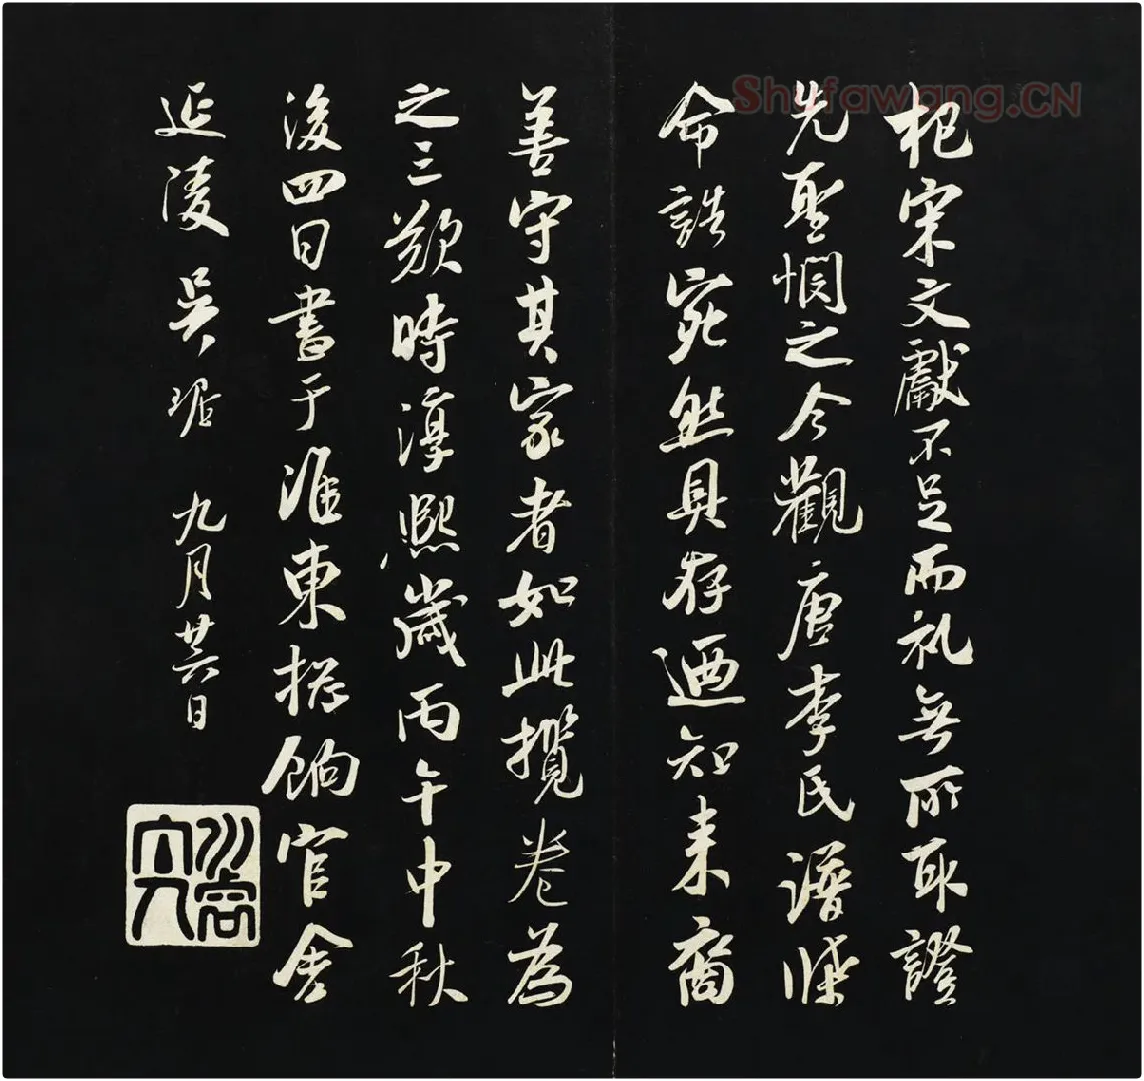 杞宋文獻不足而礼無所取證
先聖憫之今觀唐李氏譜牒
命誥宛然具存迺知来裔
善守其家者如此攬卷為
之三歎時淳熙歲丙午中秋
後四日書于淮東揔餉官舍
延陵吴琚 九月廿六日
Shufawang.CN